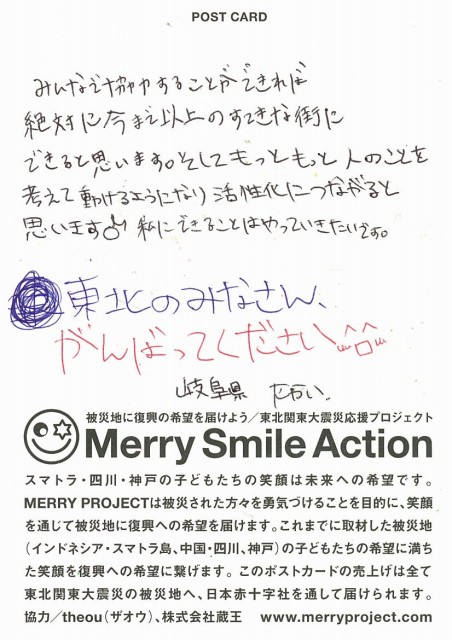 POST CARD
みんなで協力することができれば
絶対に今まで以上のすてきな街に
できると思います。そしてもっともっと人のことを
考えて動けるようになり活性化につながると
思います 私にできることはやっていきたいです。
東北のみなさん、
がんばってください
岐阜県 たかい
被災地に復興の希望を届けよう／東北関東大震災応援プロジェクト
Merry Smile Action
スマトラ・四川・神戸の子どもたちの笑顔は未来への希望です。
MERRY PROJECTは被災された方々を勇気づけることを目的に、笑顔
を通じて被災地に復興への希望を届けます。これまでに取材した被災地
（インドネシア・スマトラ島、中国・四川、神戸）の子どもたちの希望に満ち
た笑顔を復興への希望に繋げます。このポストカードの売上げは全て
東北関東大震災の被災地へ、日本赤十字社を通して届けられます。
協力／theou（ザオウ）、株式会社蔵王 www.merryproject.com